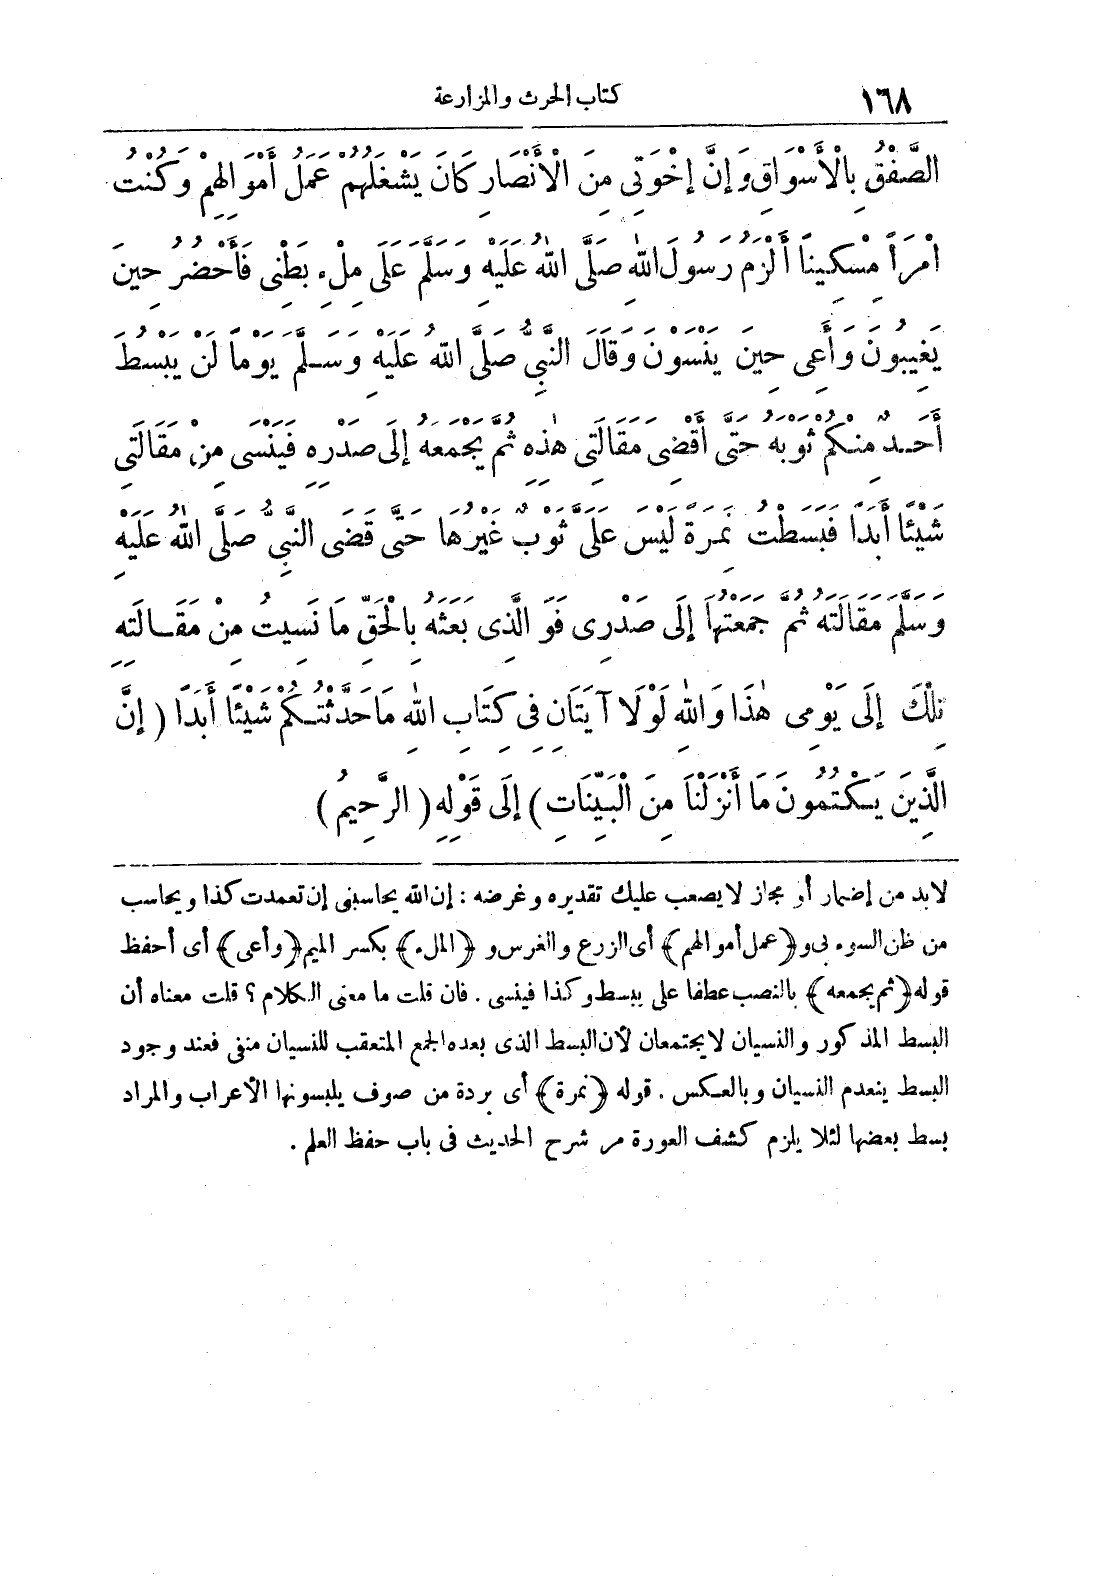 ١٦٨ كتاب الحرث والمزارعة
الصَّفْقُ بِالْأَسْوَاقِ وَإِنَّ إِخْوَتِي مِنَ الْأَنْصَارِ كَانَ يَشْغَلُهُمْ عَمَلُ أَمْوَالِهِمْ وَكُنْتُ
امْرَأً مِسْكِينًا أَلْزَمُ رَسُولَ اللهِ صَلَّى اللهُ عَلَيْهِ وَسَلَّمَ عَلَى مِلْءِ بَطْنِى فَأَحْضُرُ حِينَ
يَغِيبُونَ وَأَعِى حِينَ يَنْسَوْنَ وَقَالَ النَّبِيُّ صَلَّى اللهُ عَلَيْهِ وَسَلَّمَ يَوْمًا لَنْ يَبْسُطَ
أَحَدٌ مِنْكُمْ ثَوْبَهُ حَتَّى أَقْضِىَ مَقَالَتِى هٰذِهِ ثُمَّ يَجْمَعَهُ إِلَى صَدْرِهِ فَيَنْسَى مِنْ مَقَالَتِى
شَيْئًا أَبَدًا فَبَسَطْتُ نَمِرَةً لَيْسَ عَلَىَّ ثَوْبٌ غَيْرُهَا حَتَّى قَضَى النَّبِيُّ صَلَّى اللهُ عَلَيْهِ
وَسَلَّمَ مَقَالَتَهُ ثُمَّ جَمَعْتُهَا إِلَى صَدْرِى فَوَ الَّذِى بَعَثَهُ بِالْحَقِّ مَا نَسِيتُ مِنْ مَقَالَتِهِ
تِلْكَ إِلَى يَوْمِى هٰذَا وَاللهِ لَوْلَا آيَتَانِ فِى كِتَابِ اللهِ مَا حَدَّثْتُكُمْ شَيْئًا أَبَدًا ( إِنَّ
الَّذِينَ يَكْتُمُونَ مَا أَنْزَلْنَا مِنَ الْبَيِّنَاتِ ) إِلَى قَوْلِهِ ( الرَّحِيمُ )
لابد من إضمار أو مجاز لا يصعب عليك تقديره وغرضه : إن الله يحاسبنى إن تعمدت كذا ويحاسب
من ظن السوء بى و ﴿عمل أموالهم﴾ أى الزرع والغرس و ﴿الملء﴾ بكسر الميم ﴿وأعى﴾ أى أحفظ
قوله ﴿ثم يجمعه﴾ بالنصب عطفا على يبسط وكذا فينسى . فان قلت ما معنى الكلام ؟ قلت معناه أن
البسط المذكور والنسيان لا يجتمعان لأن البسط الذى بعده الجمع المتعقب للنسيان منفى فعند وجود
البسط ينعدم النسيان وبالعكس . قوله ﴿نمرة﴾ أى بردة من صوف يلبسونها الأعراب والمراد
بسط بعضها لئلا يلزم كشف العورة مر شرح الحديث فى باب حفظ العلم .